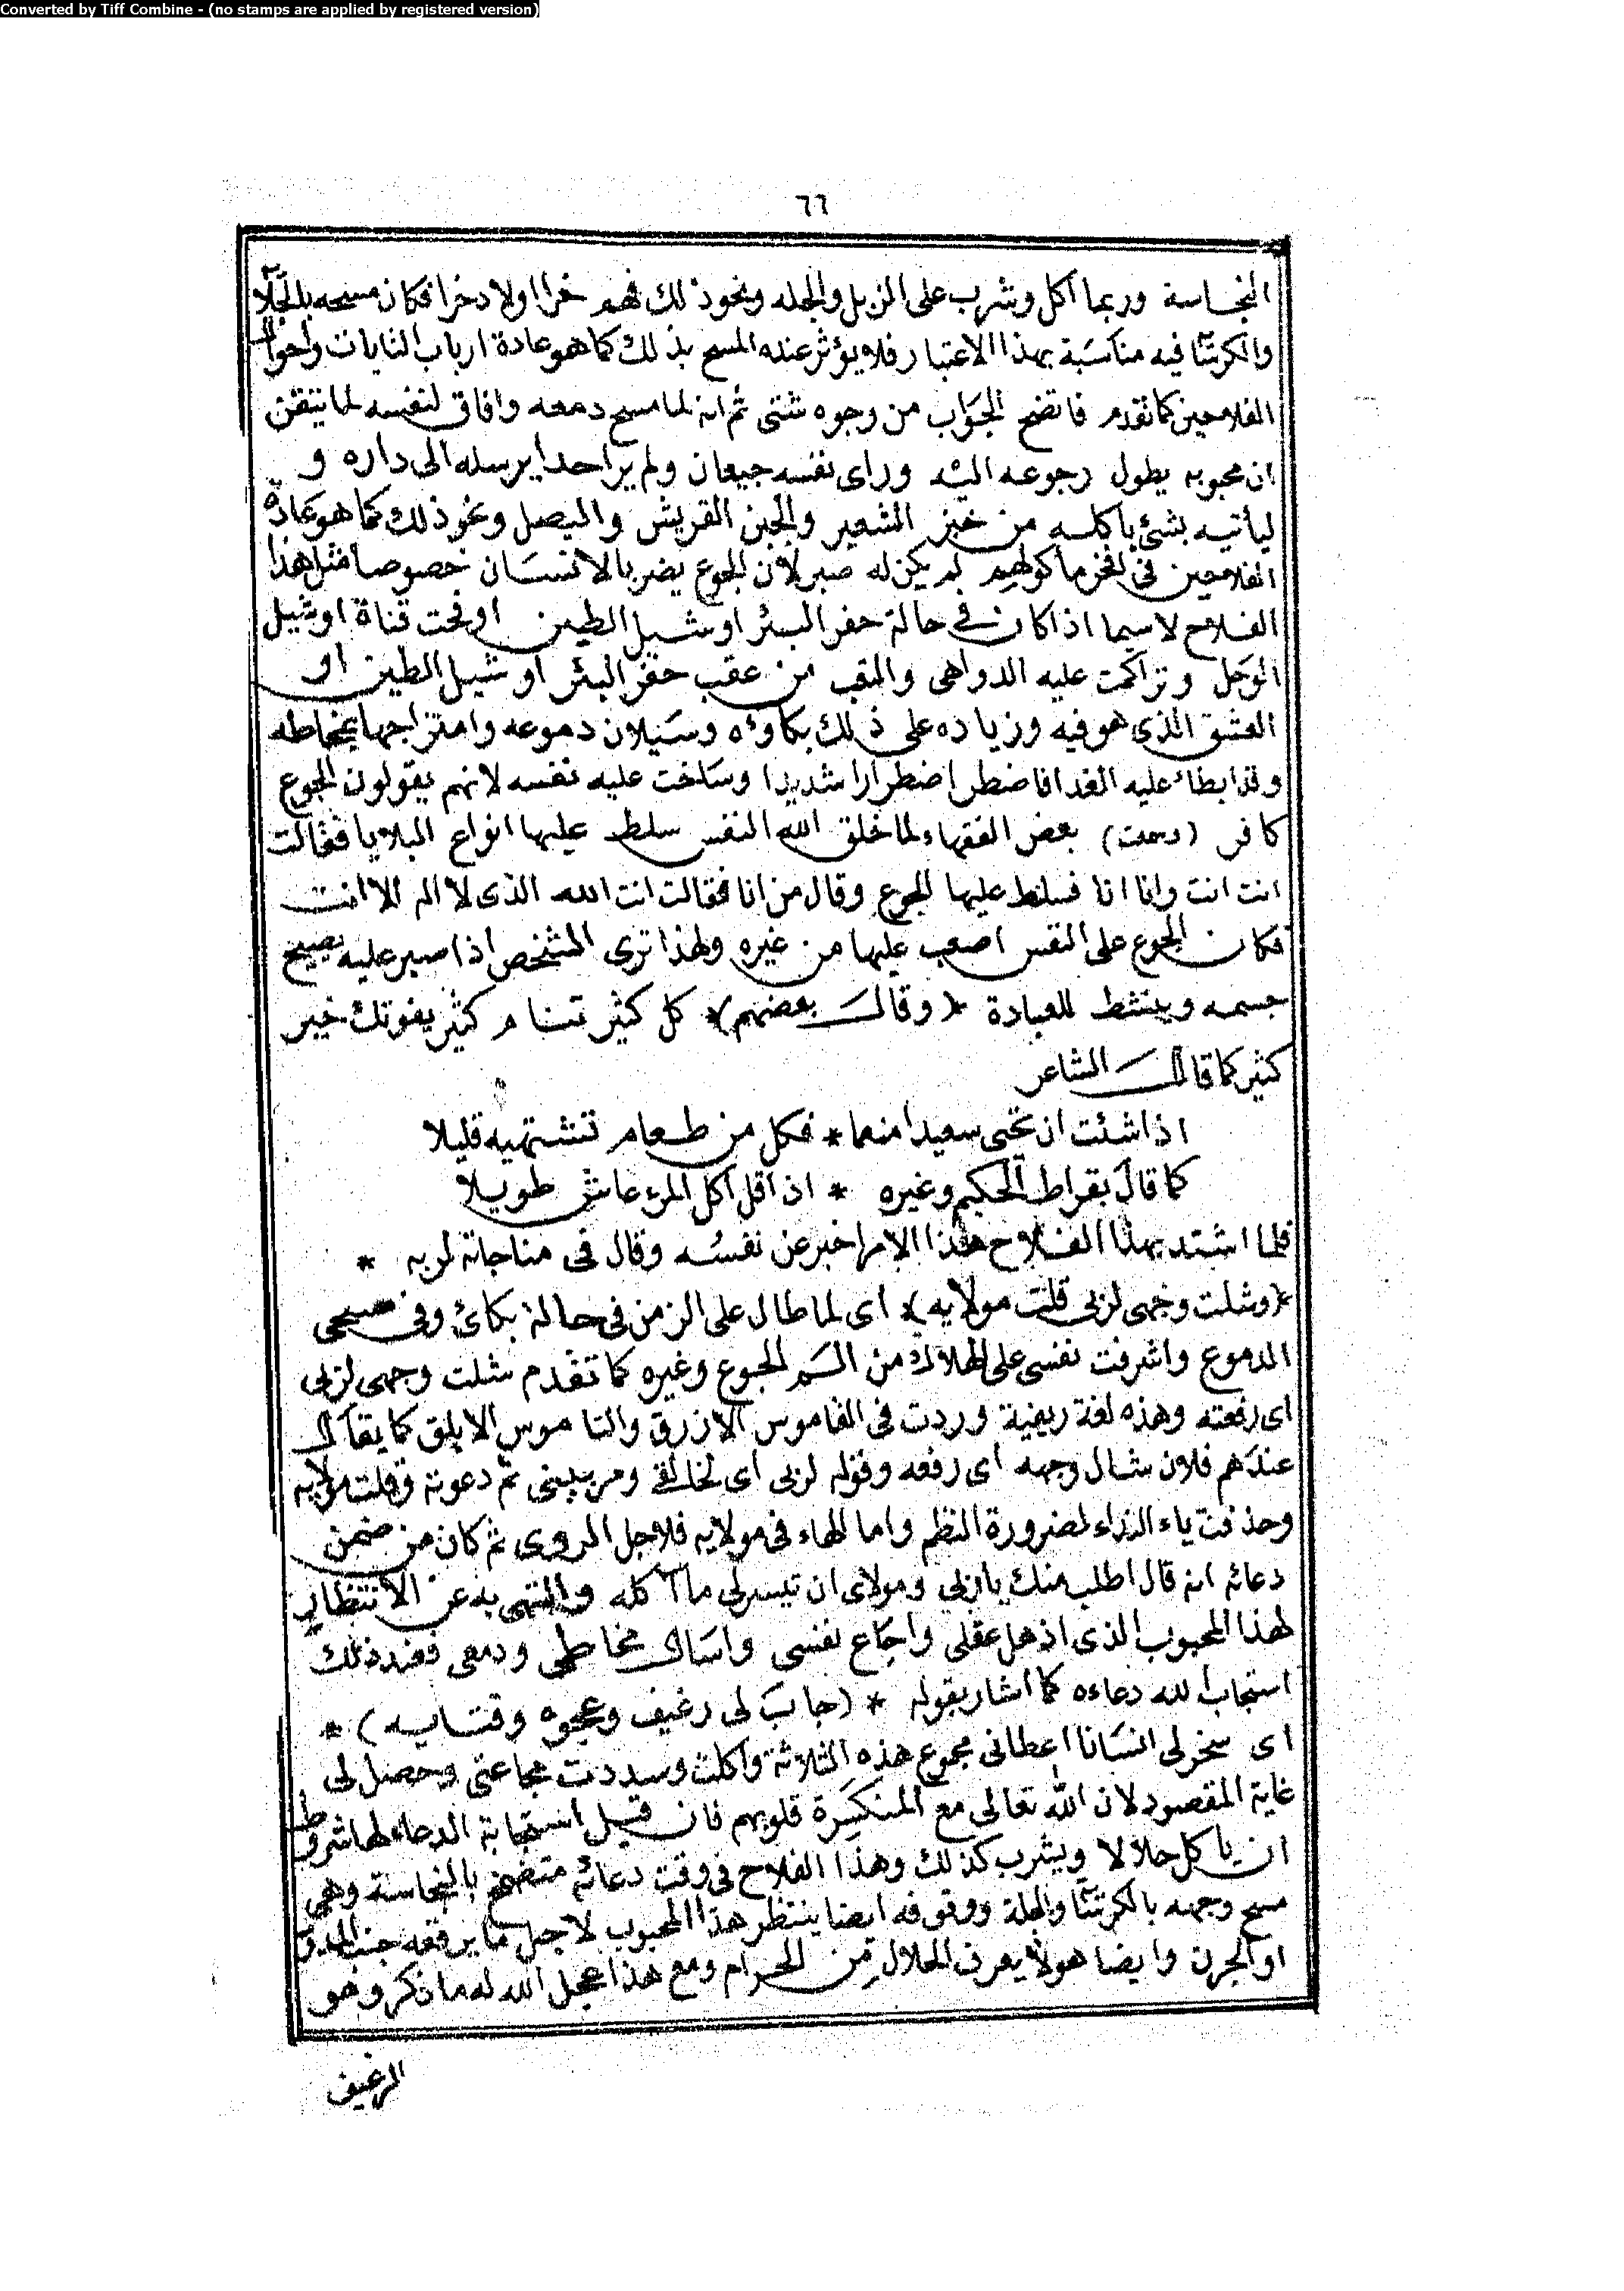 Converted by Tiff Combine - (no stamps are applied by registered version)
٦٦
النجاسة وربما اكل وشرب على الزبل والجله ونحوذلك فهم خرا اولاد خرا فكان مسحه بالجلا
والكرشا فيه مناسبة بهذا الاعتبار فلا يؤثر عنده المسح بذلك كما هو عادة ارباب النايات واحوال
الفلاحين كما تقدم فاتضح الجواب من وجوه شتى ثم انه لما مسح دمعه وافاق لنفسه لما يتقن
ان محبوبه يطول رجوعه اليه وراى نفسه جيعان ولم ير احدا يرسله الى داره و
ليأتيه بشئ ياكله من خبز الشعير والجبن القريش والبصل ونحو ذلك كما هو عادة
الفلاحين فى افخر ماكولهم لم يكن له صبر لان الجوع يضر بالانسان خصوصا مثل هذا
الفلاح لاسيما اذا كان فى حالة حفر البئر او شيل الطين او فحت قناة او شيل
الوحل وتراكمت عليه الدواهى والتعب من عقب حفر البئر او شيل الطين او
العشق الذى هو فيه وزياده على ذلك بكاؤه وسيلان دموعه وامتزاجها بمخاطه
وقد ابطاء عليه الغدا فاضطر اضطرارا شديدا وساخت عليه نفسه لانهم يقولون الجوع
كافر بعض الفقهاء لما خلق الله النفس سلط عليها انواع البلايا فقالت
انت انت وانا انا فسلط عليها الجوع وقال من انا فقالت انت الله الذى لا اله الا انت
فكان الجوع على النفس اصعب عليها من غيره ولهذا ترى الشخص اذا صبر عليه يصيح
جسمه وينشط للعبادة * (وقال بعضهم) * كل كثير تنام كثير يفوتك خير
كثير كما قال الشاعر
اذا شئت ان تحيى سعيدا منعما * فكل من طعام تشتهيه قليلا
كما قال بقراط الحكيم وغيره * اذا قل اكل المرء عاش طويلا
فلما اشتد بهذا الفلاح هذا الامر اخبر عن نفسه وقال فى مناجاته لربه *
* (وشلت وجهى لربى قلت مولايه) * اى لما طال على الزمن فى حالة بكائ وفى مسحى
الدموع واشرفت نفسى على الهلاك من الم الجوع وغيره كما تقدم شلت وجهى لربى
اى رفعته وهذه لغة ريفية وردت فى القاموس الازرق والناموس الابلق كما يقال
عندهم فلان شال وجهه اى رفعه وقوله لربى اى لخالقى ومربينى ثم دعوته وقلت مولايه
وحذفت ياء النداء لضرورة النظم واما الهاء فى مولايه فلاجل الروى ثم كان من ضمن
دعائه انه قال اطلب منك يا ربى ومولاى ان تيسر لى ما آكله والتهى به عن الانتظار
لهذا المحبوب الذى اذهل عقلى واجاع نفسى واسال مخاطى ودمعى فعند ذلك
استجاب الله دعاءه كما اشار بقوله * (جاب لى رغيف وعجوه وقتايه) *
اى سخر لى انسانا اعطانى مجموع هذه الثلاثة واكلت وسددت مجاعتى وحصل لى
غاية المقصود لان الله تعالى مع المنكسرة قلوبهم فان قيل استجابة الدعاء لها شروط
ان ياكل حلالا ويشرب كذلك وهذا الفلاح فى وقت دعائه متضمخ بالنجاسة وهى
مسح وجهه بالكرشا والجلة ووقوفه ايضا ينتظر هذا المحبوب لاجل ما يرقعه جنب المدود
او الجرن وايضا هو لا يعرف الحلال من الحرام ومع هذا عجل الله له ما ذكر وهو
الرغيف